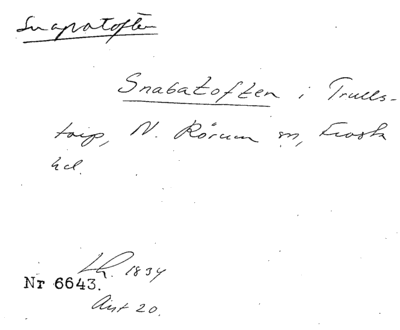 Snapatoften
Snabatoften i Trulls-
torp, N. Rörum sn, Frosta
hd.
Lh. 1834
Nr 6643.
Ant 20.